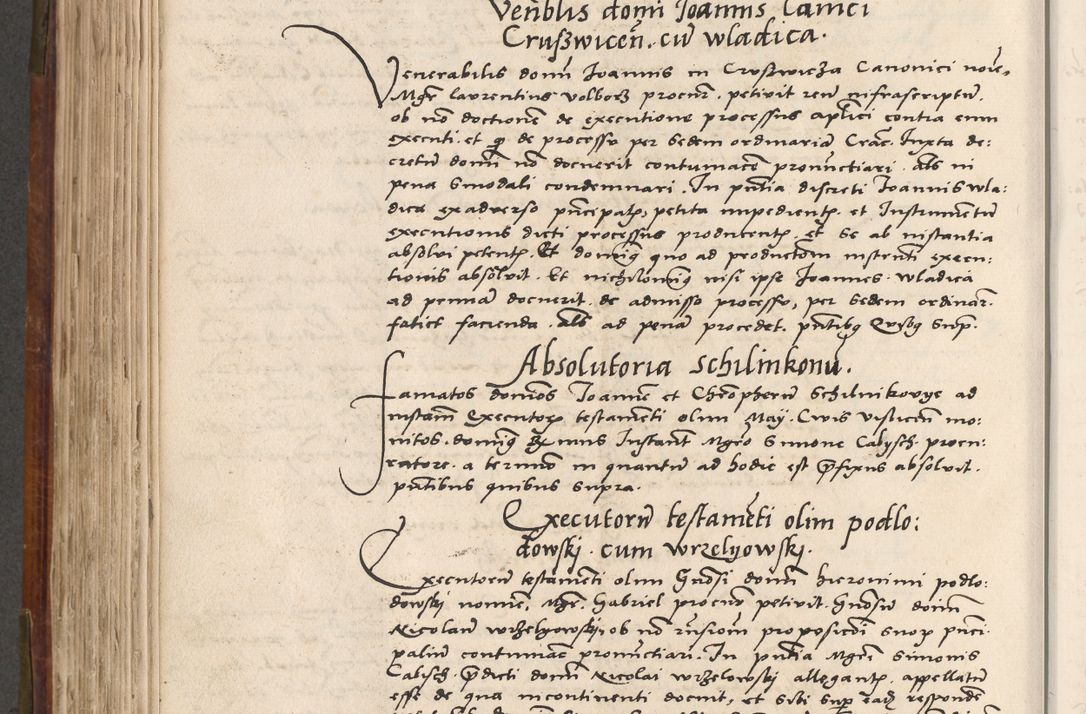 Venblis domi Joannis Canici
Cruszwicen. cu wladica.
Venerabilis domi Joannis in Cruszwicza Canonici noie.
Mgr laurentius volborz procur. petivit reu infrascriptu.
ob no doctionem de executione processus aplici contra eum
executi. et de processu per Sedem ordinaria Crac. Juxta de:
cretu domi no docuerit contumace pronuctiari. als in
pena Sinodali condemnari. In pntia discreti Joannis wla:
dica ex adverso pncipalr, petita impedientr. et Instrumetu
executionis dicti processus producentr. et se ab instantia
absolvi petentr. Et domin quo ad productom instruti execu:
tionis absolvit. Et nichilomin nisi ipse Joannes. wladica
ad prima docuerit. de admisso processu, per Sedem ordinar.
faliet facienda. als ad pena procedet. pntibq Quibq Sup.
Absolutoria schilinkonu.
Famatos domos Joanne et Chrophoru Schilnikovye ad
instam Executor testameti olim May. Civis vislicen mo:
nitos. domin Instant Mgro Simone Calysch. procu:
ratore. a termino in quantu ad hodie est pfixus absolvit.
pntibus quibus supra.
Executoru testameti olim podlo:
dowskj. cum wrzelyowskj.
Executoru testameti olim Gnosi domi hieronimi podlo:
dowskj nomine, Mgr. Gabriel procur petivit. Gnosu doim
Nicolau wrzelyowskj ob no proposicoi suor pnci
paliu contumac pronuctiari. In pntia Mgri Simonis
Calisch. pdicti domi Nicolai wrzelowskj allegantr. appellatu
esse de qua incontinenti docuit, et Siti Sup eadz responde